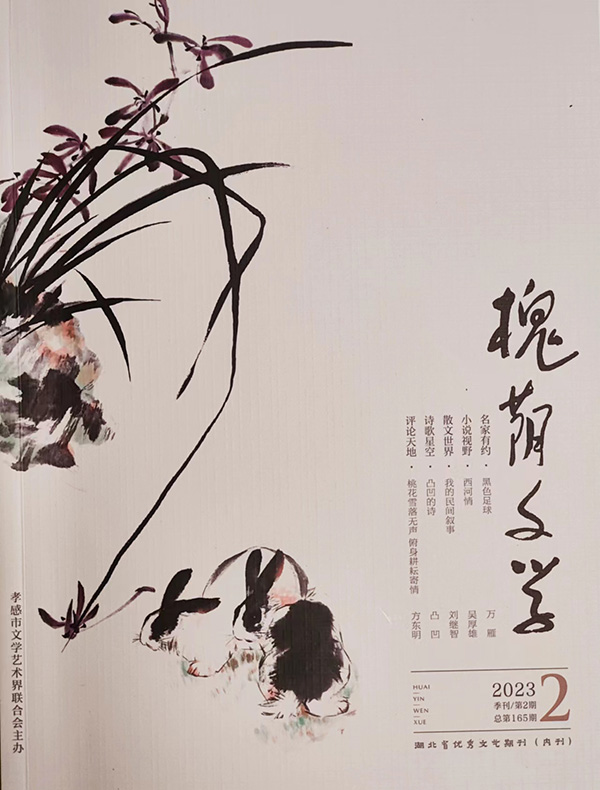 槐荫文学
名家有约·黑色足球 万雁
小说视野·西河情 吴厚雄
散文世界·我的民间叙事 刘继智
诗歌星空·凸凹的诗 凸凹
评论天地·桃花雪落无声 俯身耕耘寄情 方东明
HUAI
YIN
WEN
XUE
2023
季刊/第2期
总第165期
2
湖北省优秀文艺期刊（内刊）
孝感市文学艺术界联合会主办